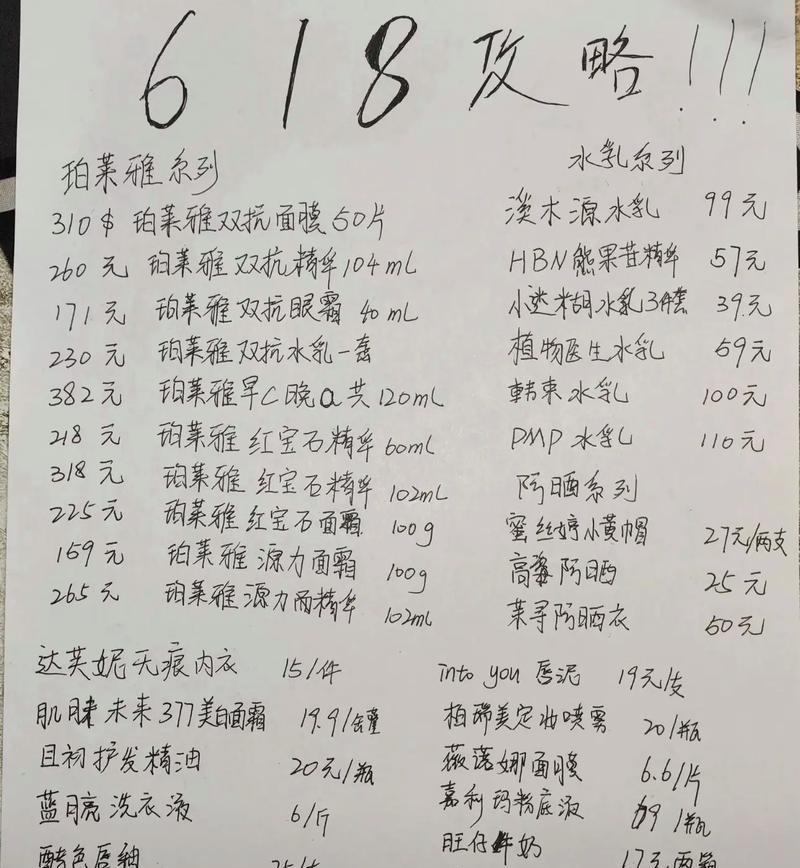 618攻略!!!
珀莱雅系列
310$ 珀莱雅双抗面膜50片
260元 珀莱雅双抗精华104mL
171元 珀莱雅双抗眼霜40mL
230元 珀莱雅双抗水乳一套
382元 珀莱雅早C晚a共120mL
218元 珀莱雅红宝石精华60mL
318元 珀莱雅红宝石精华102mL
225元 珀莱雅红宝石面霜100g
159元 珀莱雅源力面霜100g
265元 珀莱雅源力面精华102mL
水乳系列
淡木源水乳 99元
HBN熊果苷精华 57元
小迷糊水乳3件套 39元
植物医生水乳 59元
韩束水乳 100元
PMP水乳 110元
防晒系列
蜜丝婷小黄帽 27元/两支
高姿防晒 25元
茉寻防晒衣 50元
达芙妮无痕内衣 15/件
肌肤未来377美白面霜 19.9/
且初护发精油 20元/瓶
蓝月亮洗衣液 6/斤
酷色唇釉
into you 唇泥 19元/支
柏瑞美定妆喷雾 20/瓶
薇诺娜面膜 6.6/片
嘉利玛粉底液 69/瓶
旺仔牛奶 17元两箱